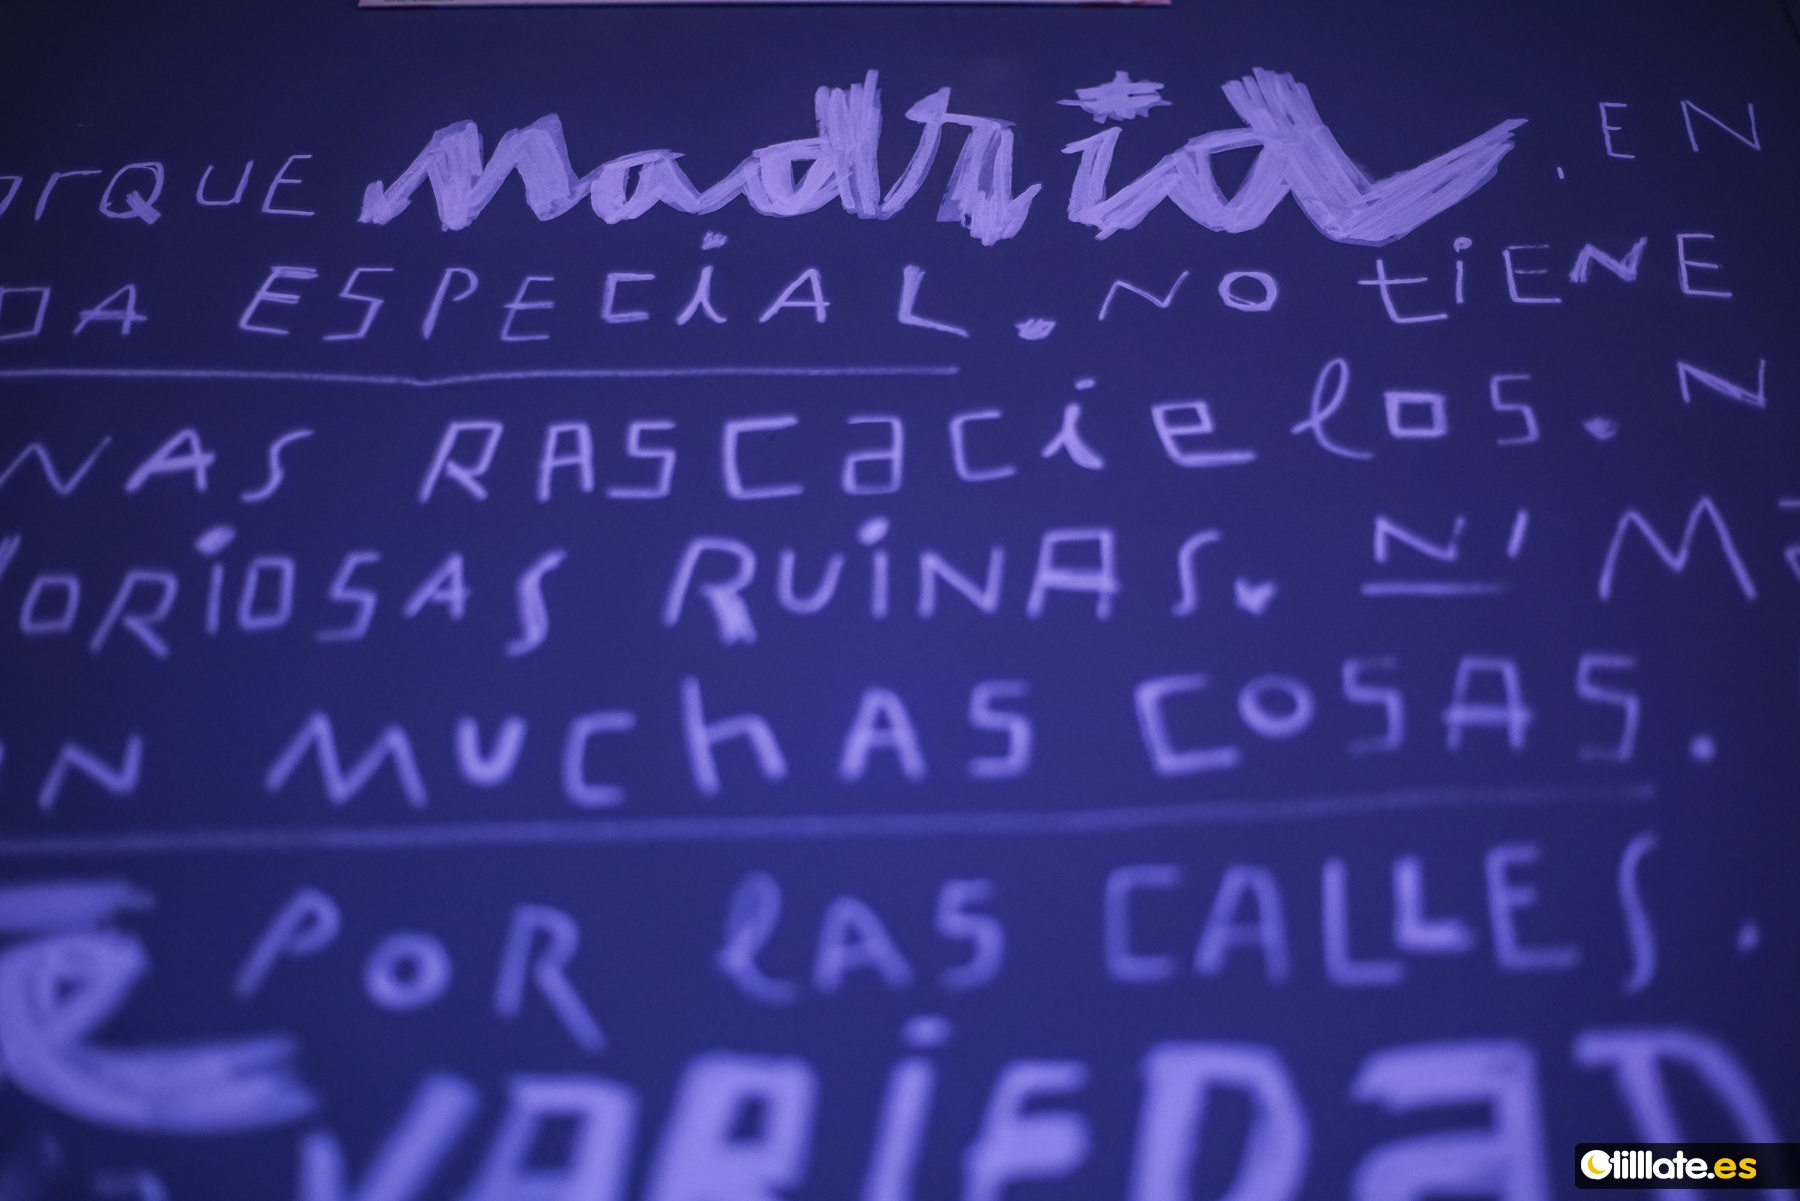 ORQUE Madrid. EN
DA ESPECiAL. NO tiENE
NAS RASCacielos. N
ORiOSAS RUiNAS. NI M
N MUChAS COSAS.
e POR LAS CALLES.
VARiEDaD
tilllate.es